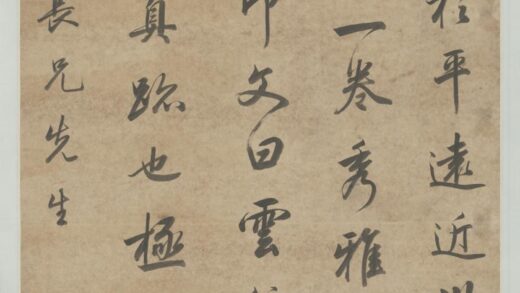 平遠近
一卷秀雅
印文曰雲
真跡也極
長兄先生